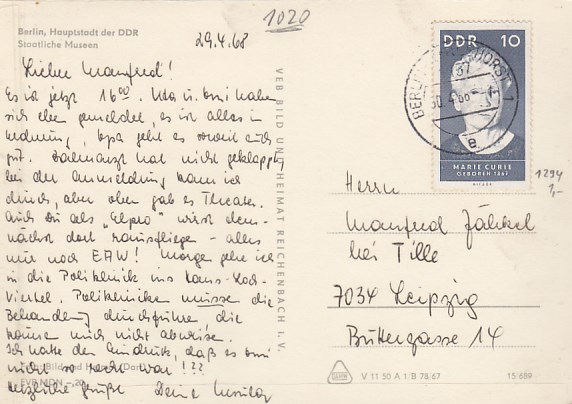 1020
Berlin, Hauptstadt der DDR
Staatliche Museen
29.4.68
Lieber Manfred!
Es ist jetzt 16⁰⁰. Uta u. haben
sich eben gemeldet, es ist alles in
Ordnung, geht es soweit auch
gut. Zahnarzt hat nicht geklappt,
bei der Anmeldung kam ich
durch, aber oben gab es Theater.
Auch Du als "Elpro" wirst dem-
nächst dort rausfliegen - alles
nur noch EAW! Morgen gehe ich
in die Poliklinik ins Hans-Loch-
Viertel. Polikliniken müssen die
Behandlung durchführen, die
können mich nicht abweisen.
Ich hatte den Eindruck, daß es
nicht so recht war!??
Herzliche Grüße Deine
EVP MDN -,20
VEB BILD UND HEIMAT REICHENBACH I. V.
DDR 10
MARIE CURIE
GEBOREN 1867
BERLIN
1
e
1294
1,-
Herrn
Manfred Jäckel
bei Tille
7034 Leipzig
Büttergasse 14
V 11 50 A 1/B 78/67
15 689